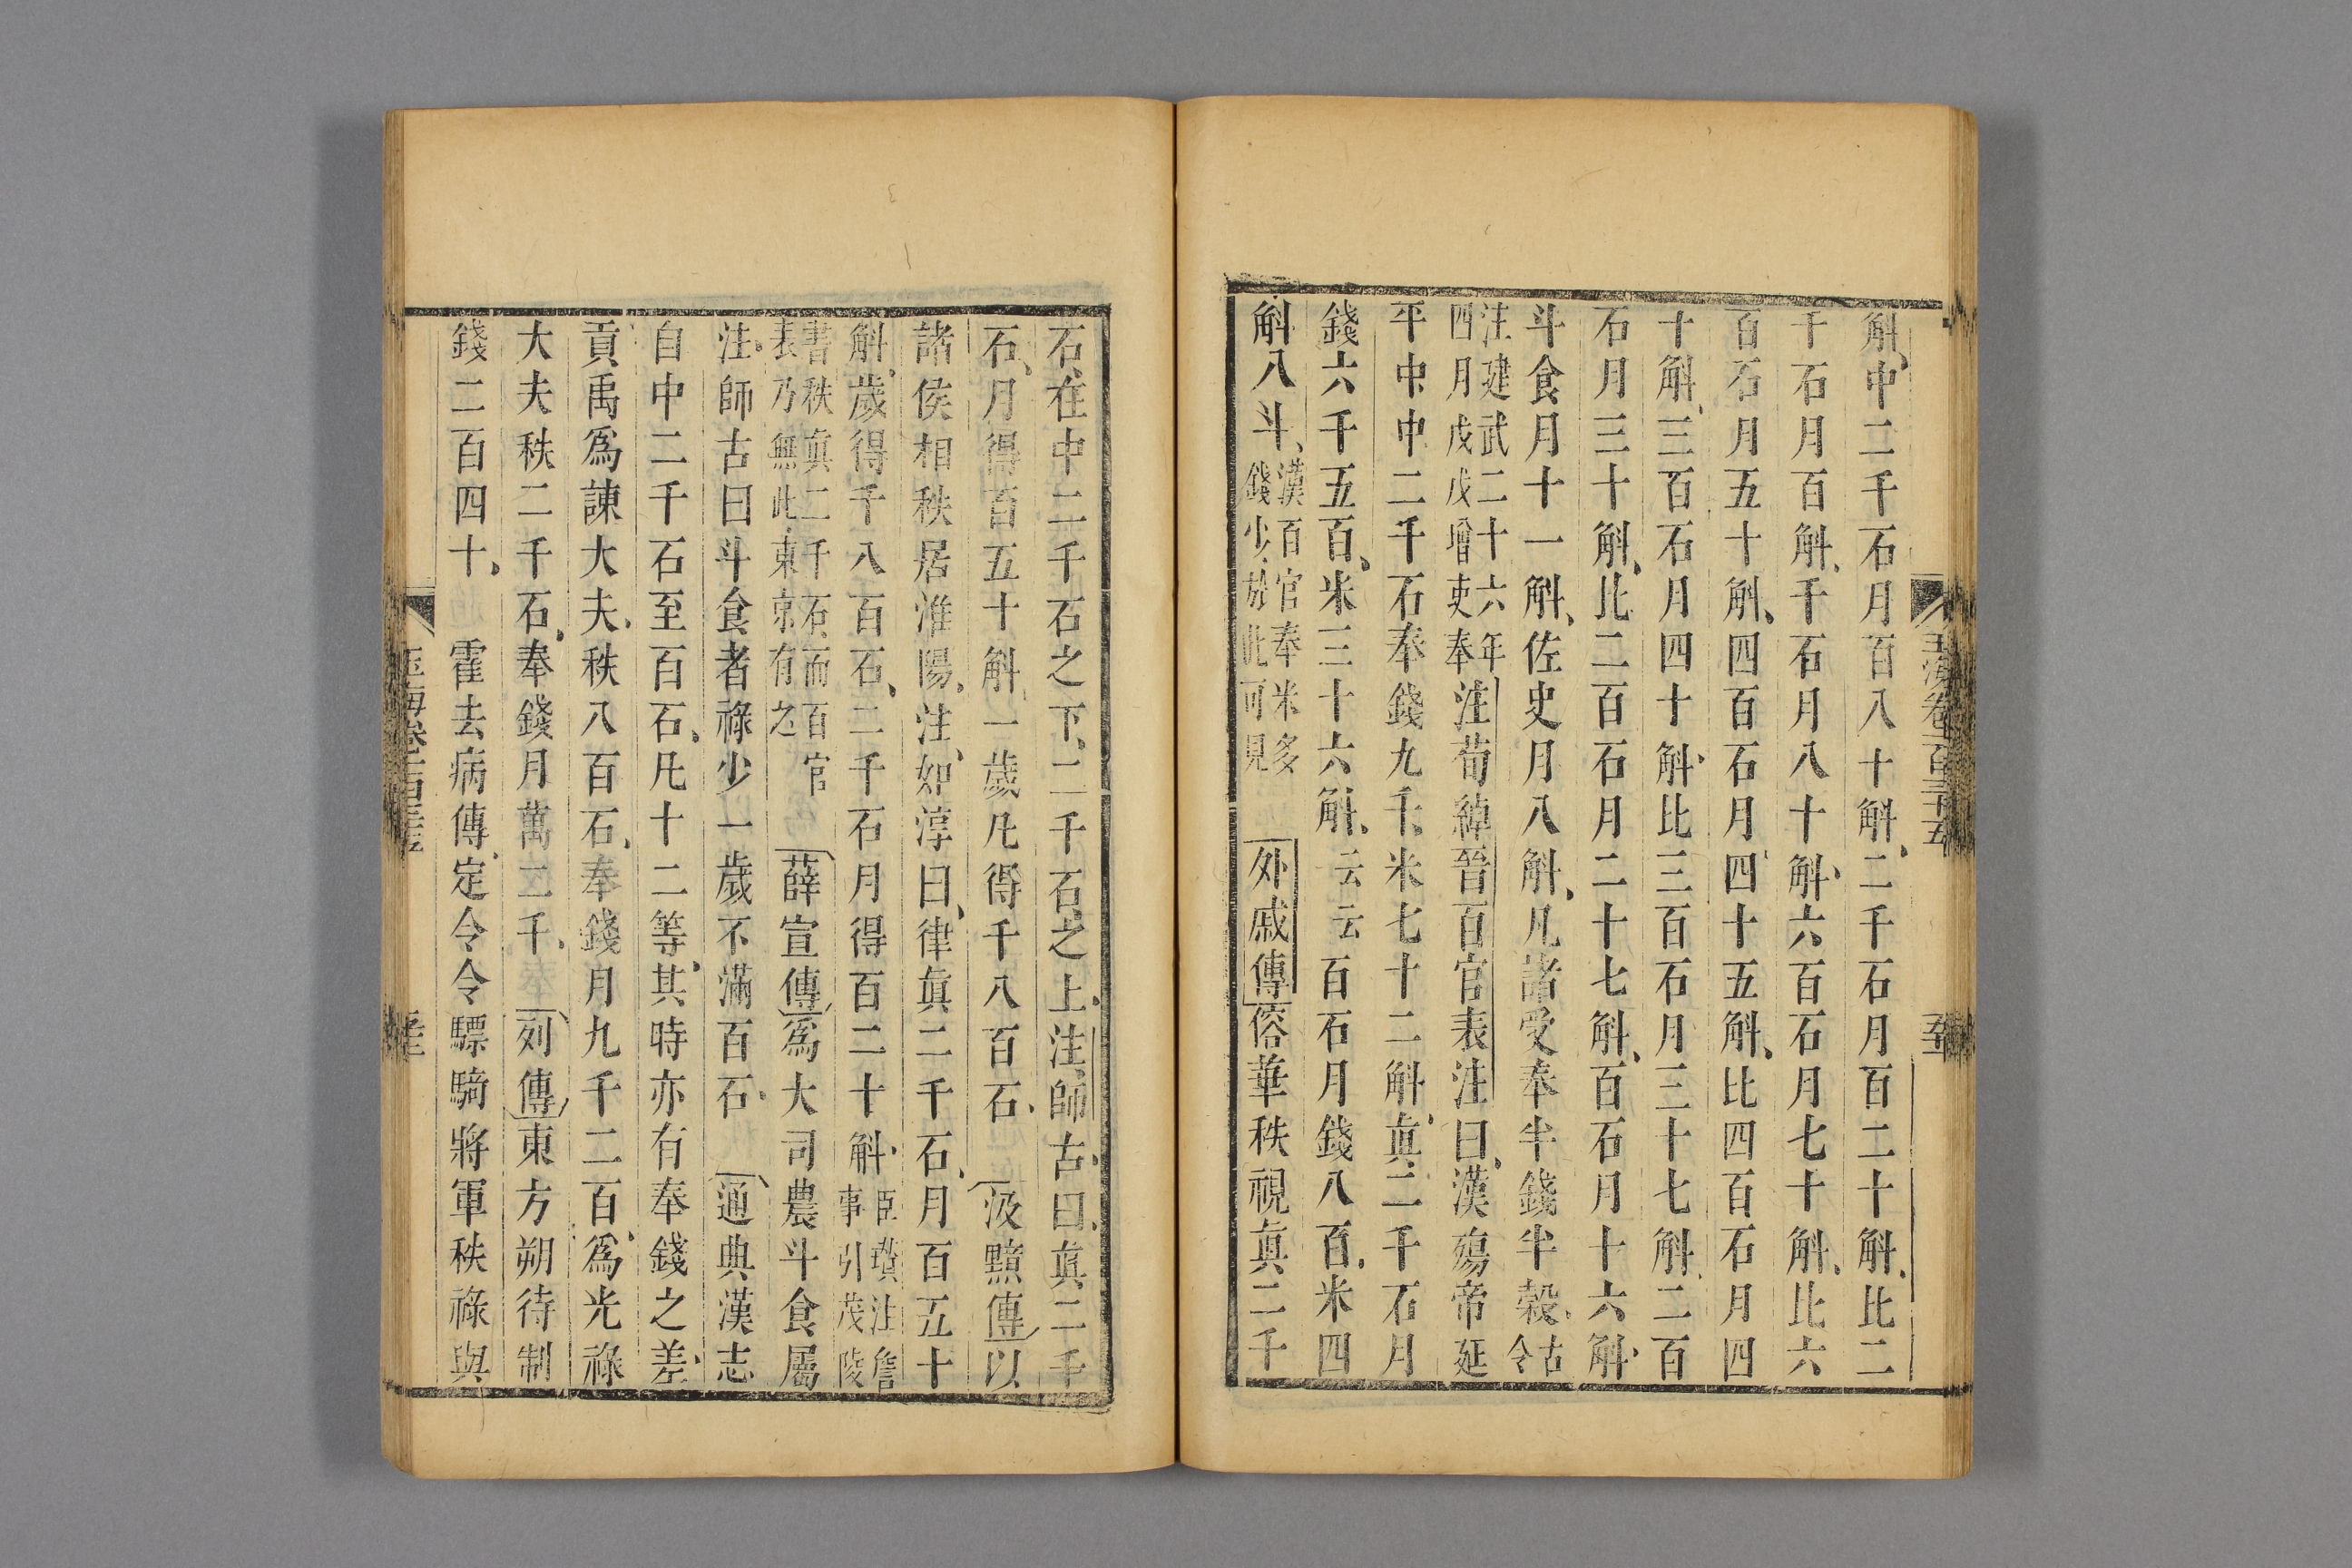 斛中二千石月百八十斛二千石月百二十斛比二
千石月百斛千石月八十斛六百石月七十斛比六
百石月五十斛四百石月四十五斛比四百石月四
十斛三百石月四十斛比三百石月三十七斛二百
石月三十斛比二百石月二十七斛百石月十六斛
斗食月十一斛佐史月八斛凡諸受奉半錢半穀古令
注建武二十六年四月戊戌增吏奉注荀綽晉百官表注曰漢殤帝延
平中中二千石奉錢九千米七十二斛真二千石月
錢六千五百米三十六斛云云百石月錢八百米四
斛八斗漢百官奉米多錢少於此可見外戚傳傛華秩視真二千
石在中二千石之下二千石之上注師古曰真二千
石月得百五十斛一歲凡得千八百石汲黯傳以
諸侯相秩居淮陽注如淳曰律真二千石月百五十
斛歲得千八百石二千石月得百二十斛臣瓚注詹事引茂陵
書秩真二千石而百官表乃無此東京有之薛宣傳為大司農斗食屬
注師古曰斗食者祿少一歲不滿百石通典漢志
自中二千石至百石凡十二等其時亦有奉錢之差
貢禹為諫大夫秩八百石奉錢月九千二百為光祿
大夫秩二千石奉錢月萬二千列傳東方朔待制
錢二百四十霍去病傳定令令驃騎將軍秩祿與